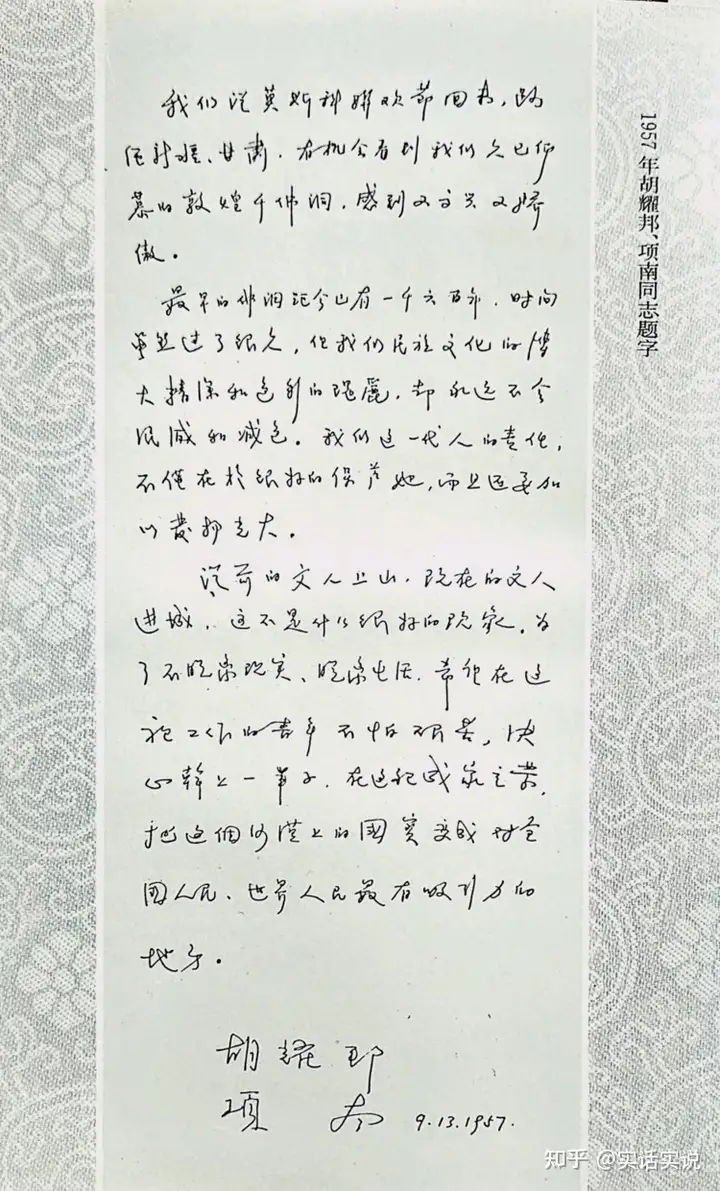 我们从莫斯科联欢节回来，路
经新疆、甘肃，有机会看到我们久已仰
慕的敦煌千佛洞，感到又高兴又骄
傲。
最早的佛洞距今已有一千六百年，时间
虽然过了很久，但我们民族文化的博
大精深和色彩的瑰丽，却永远不会
泯灭和减色。我们这一代人的责任，
不仅在於很好的保护她，而且还要加
以发扬光大。
从前的文人上山，现在的文人
进城，这不是什么很好的现象。为
了不脱离现实、脱离生活，希望在这
裡工作的青年不怕艰苦，决
心幹上一辈子，在这裡成家立业，
把这個沙漠上的國寳变成对全
國人民、世界人民最有吸引力的
地方。
胡耀邦
项南 9.13.1957.
1957年胡耀邦、项南同志题字
知乎 @实话实说